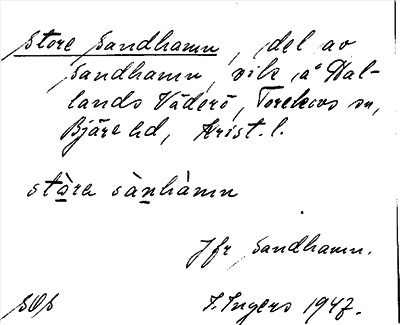 Store Sandhamn, del av
Sandhamn, vik å Hal-
lands Väderö, Torekovs sn,
Bjäre hd, Krist. l.
stàre sànhàmn
Jfr Sandhamn.
SOS
I. Ingers 1947.